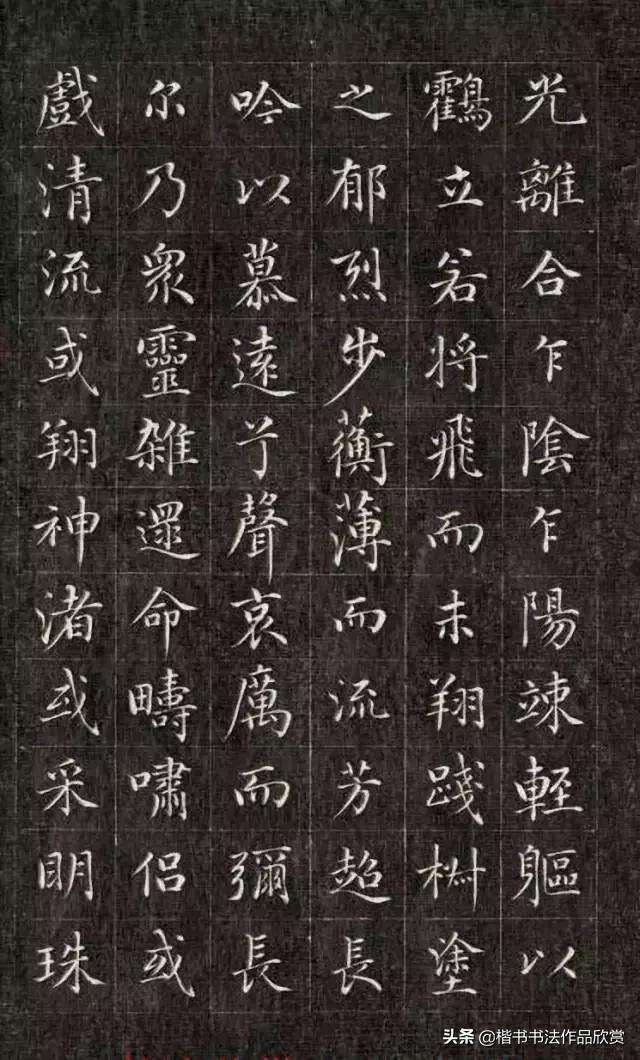 光離合乍陰乍陽竦輕軀以
鶴立若將飛而未翔踐椒塗
之郁烈步蘅薄而流芳超長
吟以慕遠兮聲哀厲而彌長
尔乃衆靈雜遝命疇嘯侶或
戲清流或翔神渚或采明珠
头条@楷书书法作品欣赏